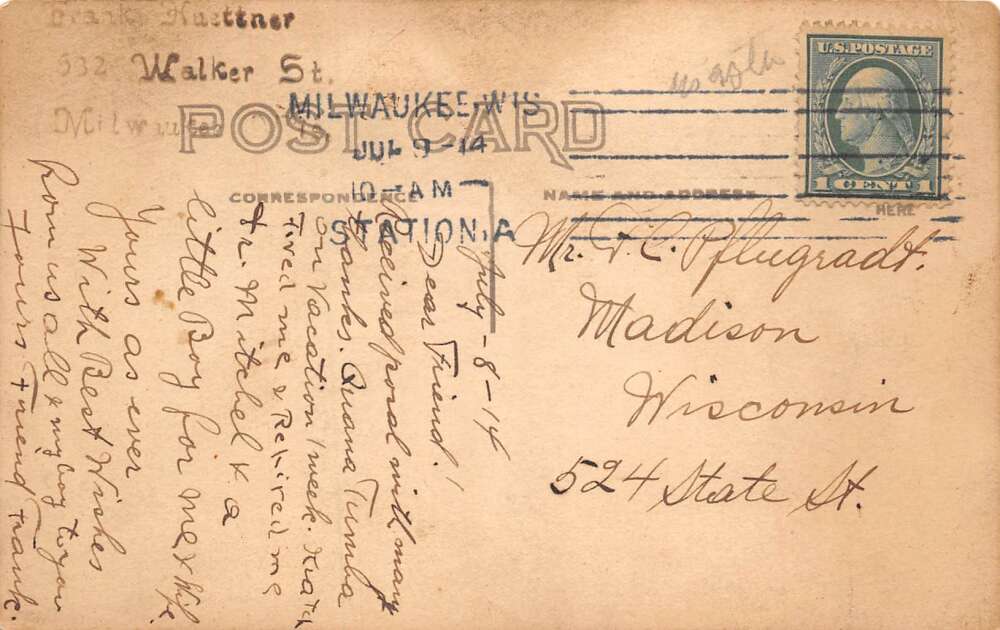 Frank Huettner
532 Walker St.
Milwaukee Wis.
POST CARD
MILWAUKEE, WIS
JUL 9-14
10-AM
STATION, A
U.S. POSTAGE
1 CENT 1
CORRESPONDENCE
NAME AND ADDRESS
HERE
July-8-14
Dear Friend!
Received postal with many
thanks.
on Vacation 1 week.
Tired me & Received me
Fr. Mitchel & a
little Boy for me & Wife.
Yours as ever
With Best Wishes
from us all & my boy to you
Yours Friend Frank.
Mr. F. C. Pflugradt.
Madison
Wisconsin
524 State St.